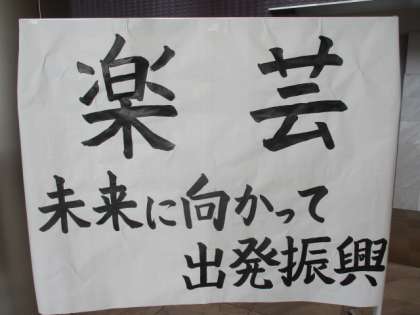 楽芸
未来に向かって
出発振興